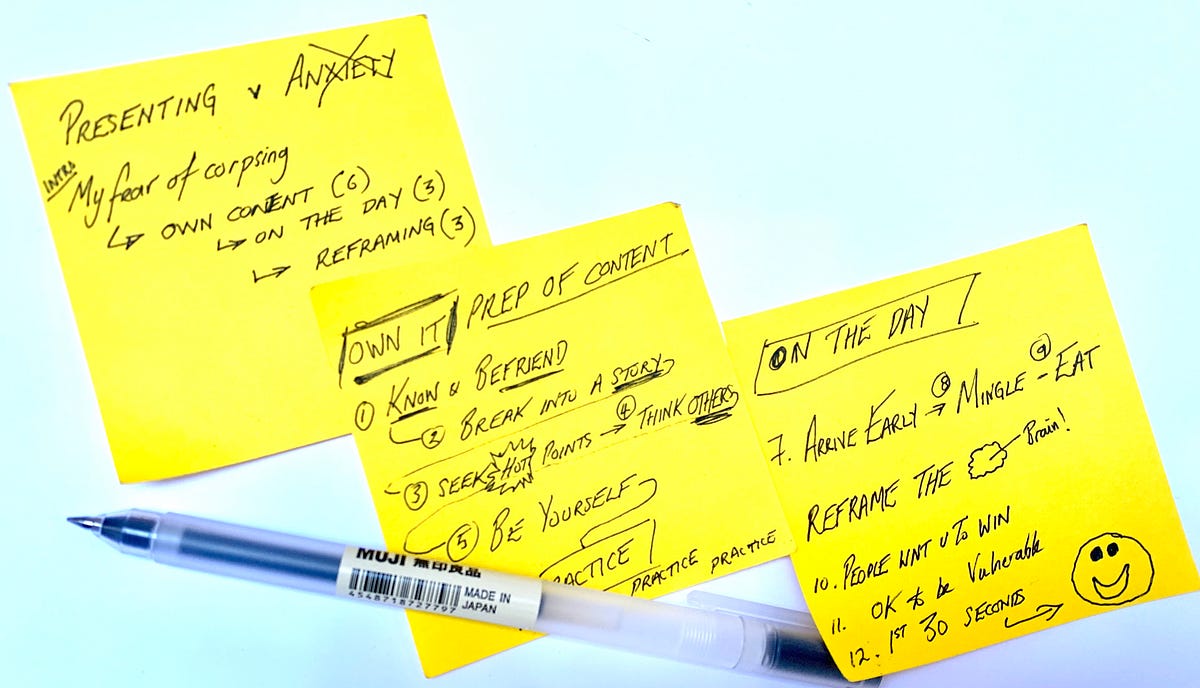 PRESENTING v ANXIETY
INTRO
My fear of corpsing
↳ OWN CONTENT (6)
↳ ON THE DAY (3)
↳ REFRAMING (3)
OWN IT PREP OF CONTENT
① KNOW & BEFRIEND
② BREAK INTO A STORY
③ SEEK HOT POINTS → ④ THINK OTHERS
⑤ BE YOURSELF
RACTICE PRACTICE PRACTICE
ON THE DAY
7. ARRIVE EARLY → ⑧ MINGLE - ⑨ EAT
REFRAME THE Brain!
10. PEOPLE WNT U TO WIN
11. OK to be Vulnerable
12. 1ST 30 SECONDS
MUJI 無印良品
4548718727797
MADE IN
JAPAN